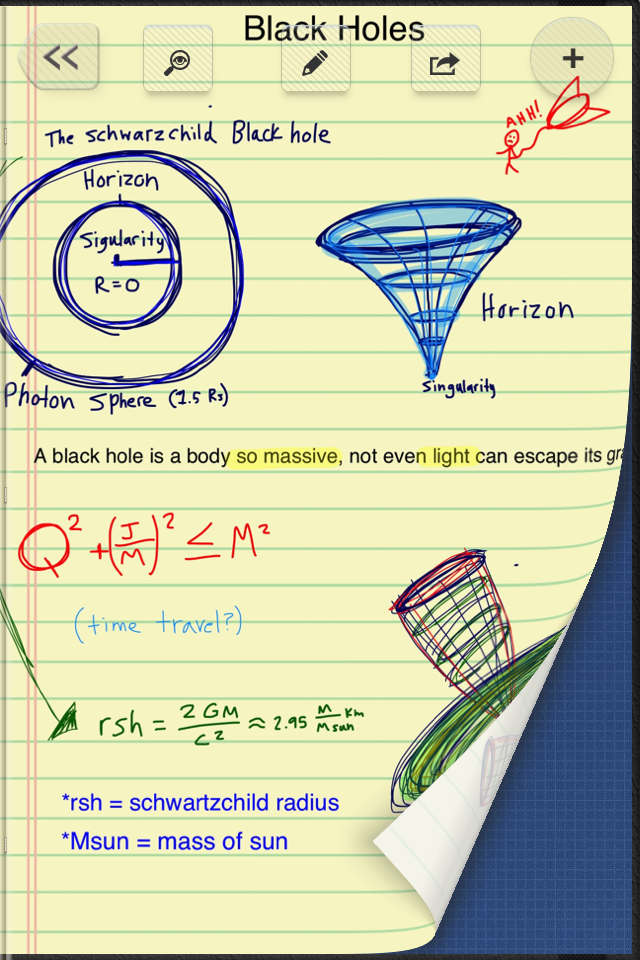 Black Holes
AHH!
The schwarzchild Black hole
Horizon
Sigularity
R=0
Photon Sphere (1.5 Rs)
Horizon
Singularity
A black hole is a body so massive, not even light can escape its
Q² + (J/M)² ≤ M²
(time travel?)
rsh = 2GM/c² ≈ 2.95 M/Msun km
*rsh = schwartzchild radius
*Msun = mass of sun